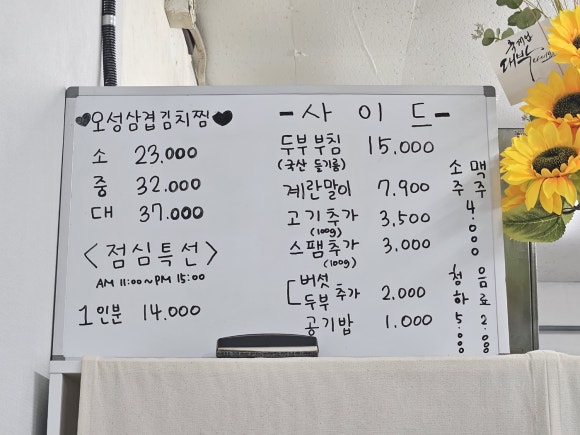 ♥오성삼겹김치찜♥
소 23.000
중 32.000
대 37.000
<점심특선>
AM 11:00~PM 15:00
1인분 14.000
-사이드-
두부부침 15.000
(국산 들기름)
계란말이 7.900
고기추가 3,500
(100g)
스팸추가 3,000
(100g)
버섯
두부 추가 2.000
공기밥 1.000
소주 맥주 4.000
청하 5.000
음료 2.000
대박